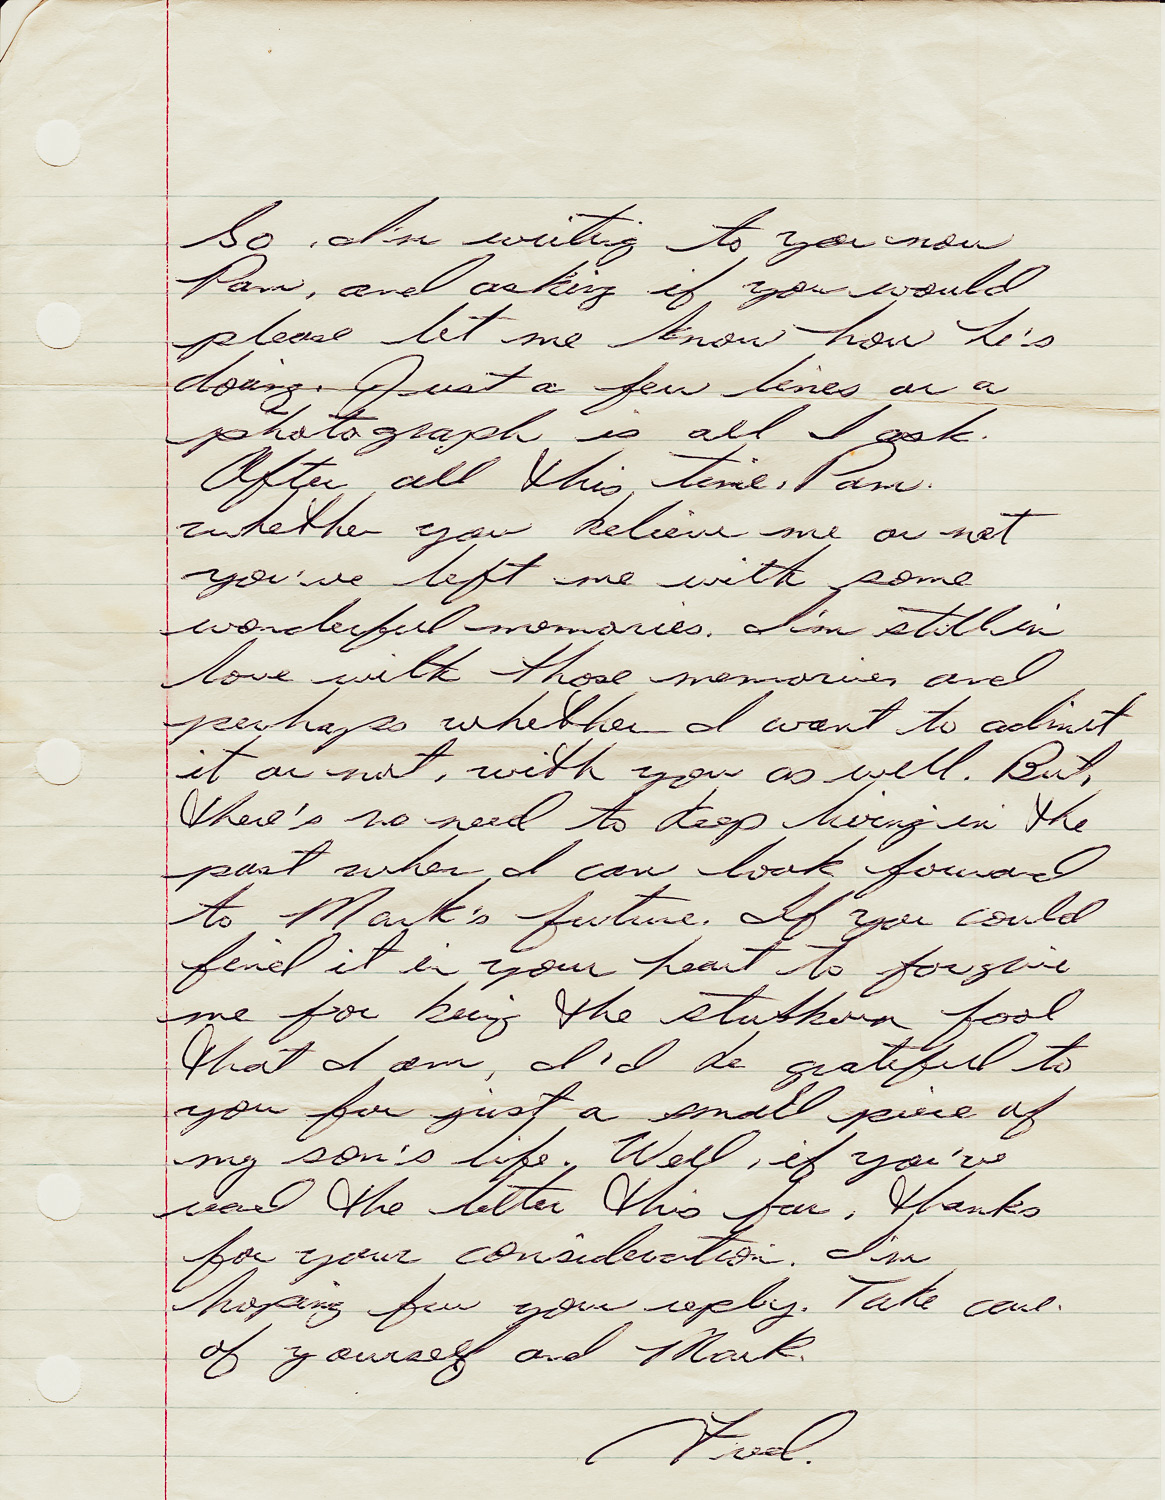 So, I'm writing to you now
Pam, and asking if you would
please let me know how he's
doing. Just a few lines or a
photograph is all I ask.
After all this time, Pam.
whether you believe me or not
you've left me with some
wonderful memories. I'm still in
love with those memories and
perhaps whether I want to admit
it or not, with you as well. But,
there's no need to keep living in the
past when I can look forward
to Mark's future. If you could
find it in your heart to forgive
me for being the stubborn fool
that I am, I'd be grateful to
you for just a small piece of
my son's life. Well, if you've
read the letter this far, thanks
for your consideration. I'm
hoping for your reply. Take care.
of yourself and Mark.
Fred.